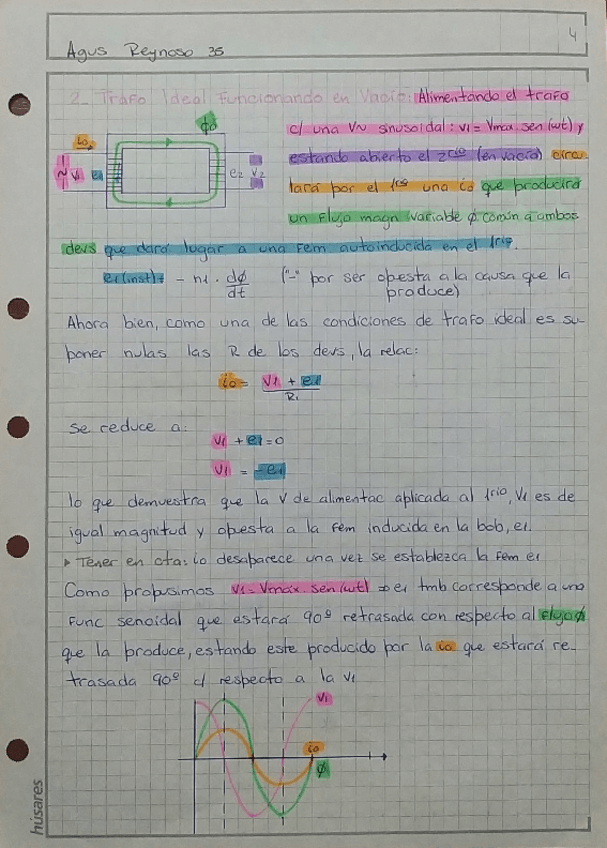 4
Agus Reynoso 35
2_ Trafo Ideal Funcionando en Vacío: Alimentando el trafo
c/ una V~ sinusoidal: v1 = Vmax. sen(wt) y
estando abierto el 2rio (en vacío) circu
lará por el 1rio una io que producirá
un flujo magn variable ϕ común a ambos
io
ϕ
~ v1 e1 e2 v2
devs que dará lugar a una fem autoinducida en el 1rio.
e1(inst) = - n1 . dϕ/dt ("-" por ser opuesta a la causa que la
produce)
Ahora bien, como una de las condiciones de trafo ideal es su-
poner nulas las R de los devs, la relac:
io = v1 + e1 / R1
se reduce a:
v1 + e1 = 0
v1 = -e1
lo que demuestra que la V de alimentac aplicada al 1rio, V1 es de
igual magnitud y opuesta a la fem inducida en la bob, e1.
▸ Tener en cta: io desaparece una vez se establezca la fem e1
Como propusimos v1 = Vmáx. sen(wt) ⇒ e1 tmb corresponde a una
func senoidal que estará 90º retrasada con respecto al flujo ϕ
que la produce, estando este producido por la io que estará re-
trasada 90º c/ respecto a la v1
v1
io
ϕ
húsares